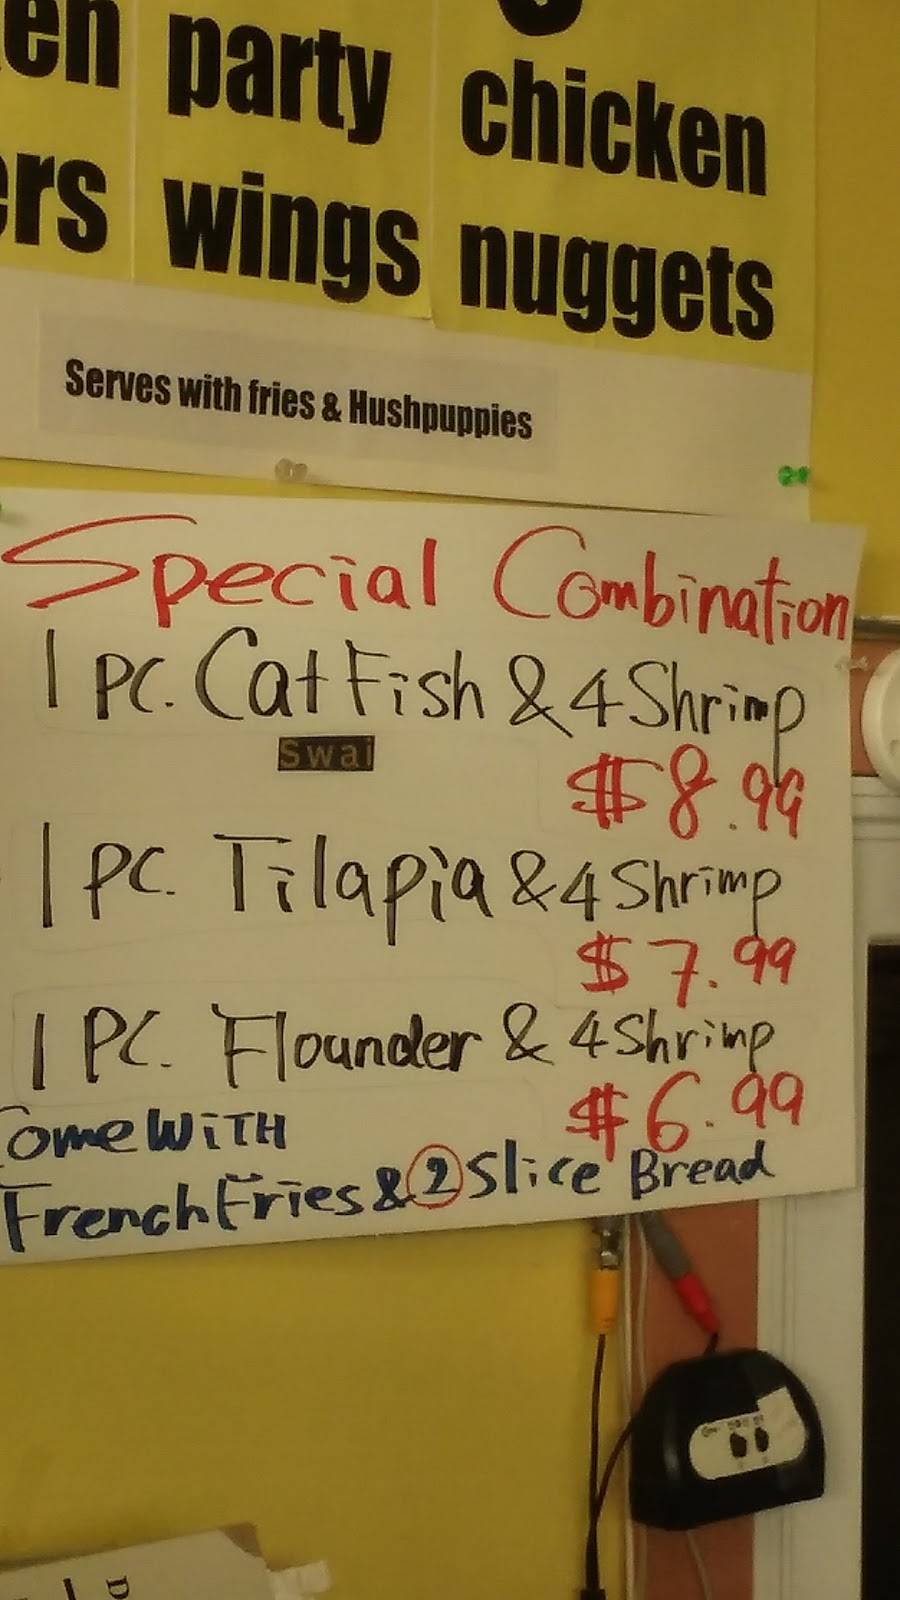 party chicken
wings nuggets
Serves with fries & Hushpuppies
Special Combination
1 PC. CatFish & 4 Shrimp
Swai
$8.99
1 PC. Tilapia & 4 Shrimp
$7.99
1 PC. Flounder & 4 Shrimp
$6.99
Come WiTH
French Fries & 2 Slice Bread